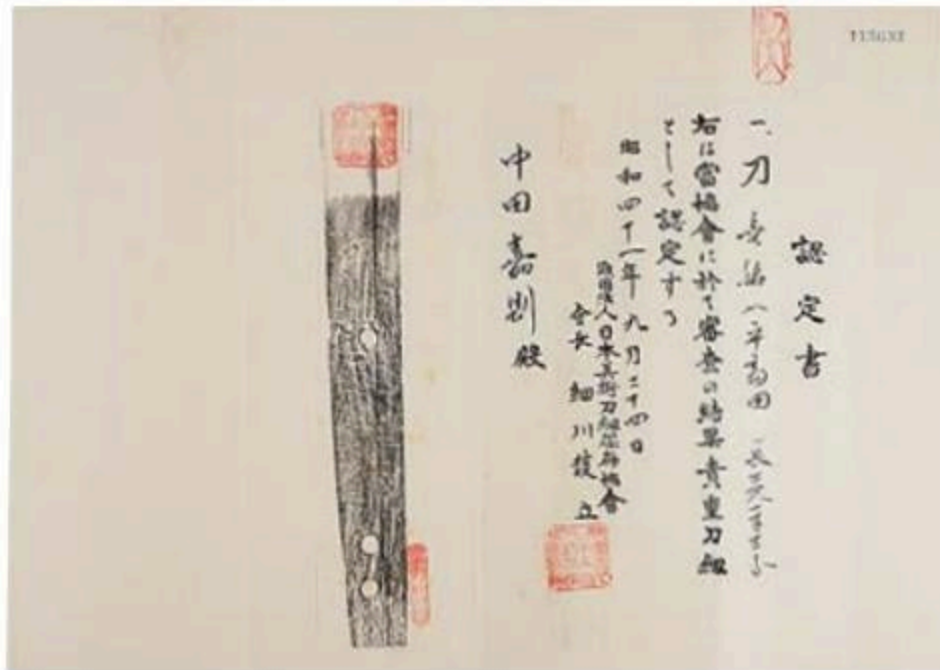 認定書
一、刀 無銘(平高田)
右は當協會に於て審査の結果貴重刀剣
として認定する
昭和四十一年九月二十四日
財團法人日本美術刀剣保存協會
會長 細川護立
中田 殿